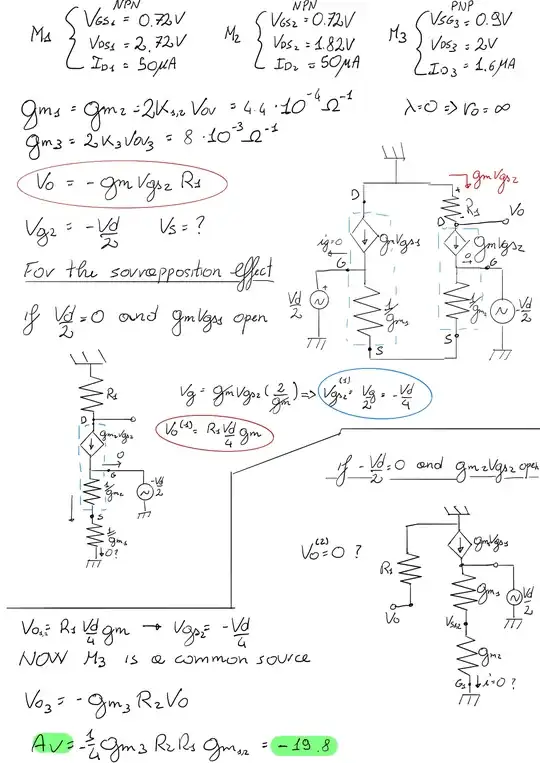 NPN
M1 { VGS1 = 0.72V
VDS1 = 2.72V
ID1 = 50μA
NPN
M2 { VGS2 = 0.72V
VDS2 = 1.82V
ID2 = 50μA
PNP
M3 { VSG3 = 0.9V
VDS3 = 2V
ID3 = 1.6μA
gm1 = gm2 = 2K1,2 VOV = 4.4 · 10⁻⁴ Ω⁻¹
gm3 = 2K3 VOV3 = 8 · 10⁻³ Ω⁻¹
λ=0 => ro = ∞
Vo = - gm Vgs2 R1
Vg2 = -Vd/2 Vs = ?
For the sovrapposition effect
if Vd/2 = 0 and gmVgs1 open
gmVgs2
D
R1
Vo
D
ig=0
G
gmVgs1
gmVgs2
0
G
Vd/2
+
1/gm1
1/gm2
-Vd/2
S
S
R1
D
gm2Vgs2
0
G
1/gm2
-Vd/2
S
1/gm1
0?
Vg = gmVgs2 (2/gm) => Vgs2⁽¹⁾ = Vg/2 = -Vd/4
Vo⁽¹⁾ = R1 Vd/4 gm
if -Vd/2 = 0 and gm2Vgs2 open
Vo⁽²⁾ = 0 ?
gmVgs1
R1
Vo
gm1
Vd/2
VS1,2
gm2
i=0?
R1 Vd/4 gm → Vgs2 = -Vd/4
NOW M3 is a common source
Vo3 = - gm3 R2 Vo
Av = -1/4 gm3 R2 R1 gm1,2 = -19.8